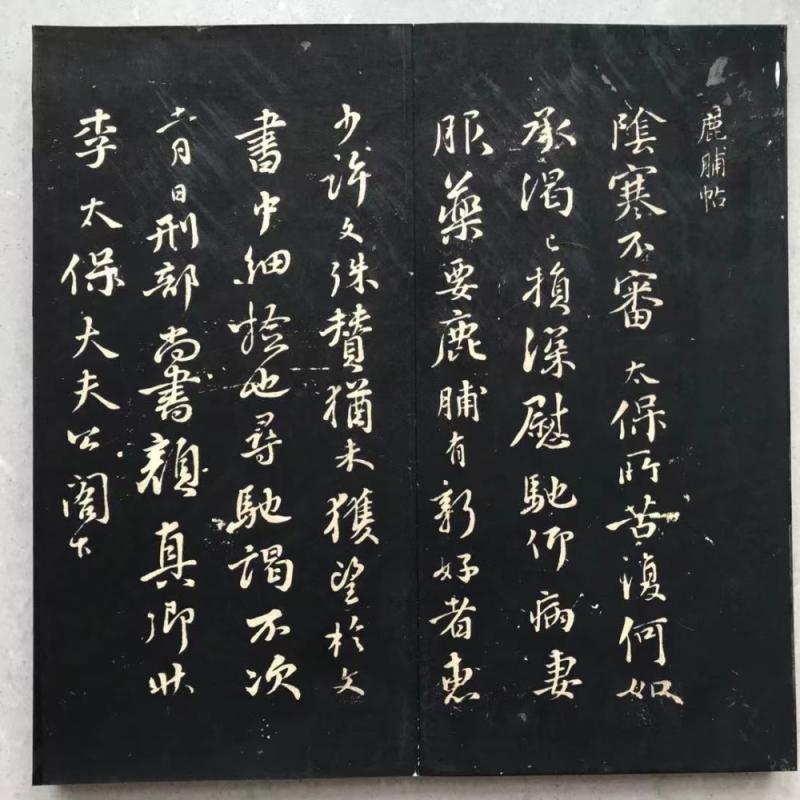 鹿脯帖
陰寒不審太保所苦復何如
承渴已損深慰馳仰病妻
服藥要鹿脯有新好者惠
少許文殊贊猶未獲望於文
書中細撿也尋馳謁不次
六月日刑部尚書顏真卿狀
李太保大夫公閣下